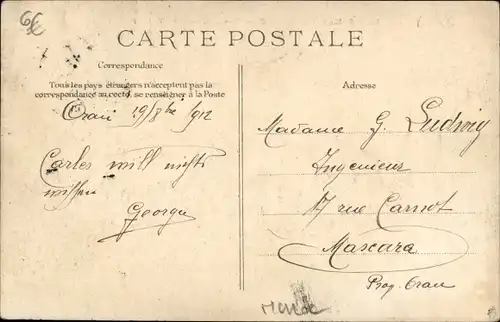 66
CARTE POSTALE
Correspondance
Tous les pays étrangers n'acceptent pas la
correspondance au recto, se renseigner à la Poste
Oran 19/8bre/912
Carles will nichts
wissen
Georges
Adresse
Madame G. Ludwig
Ingenieur
17 rue Carnot
Mascara
Prov. Oran